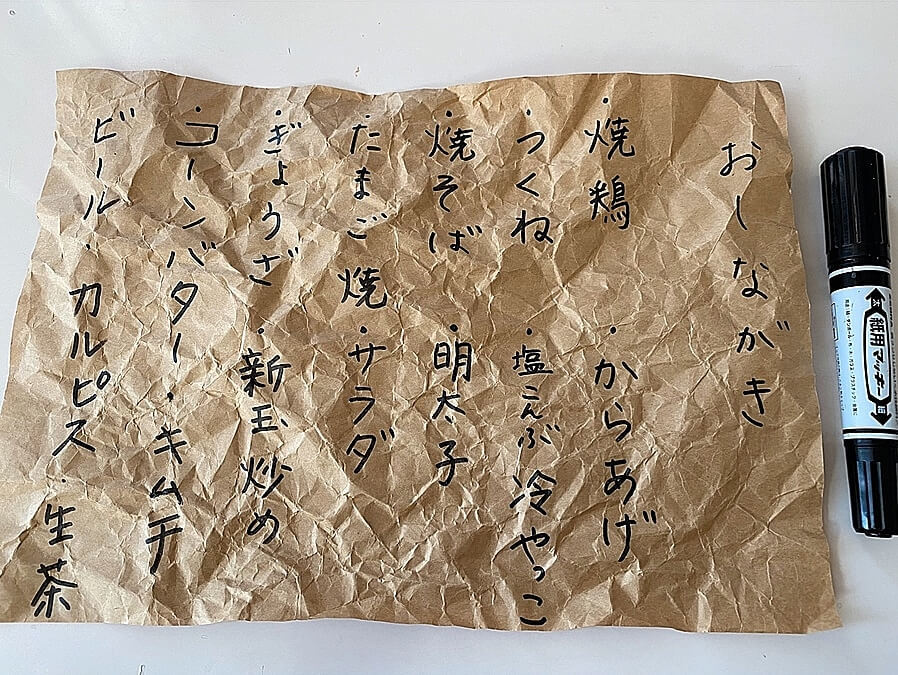 おしながき
・焼鶏 ・からあげ
・つくね ・塩こんぶ冷やっこ
・焼そば ・明太子
・たまご焼 ・サラダ
・ぎょうざ ・新玉炒め
・コーンバター ・キムチ
ビール・カルピス・生茶
太 紙用マッキー 細